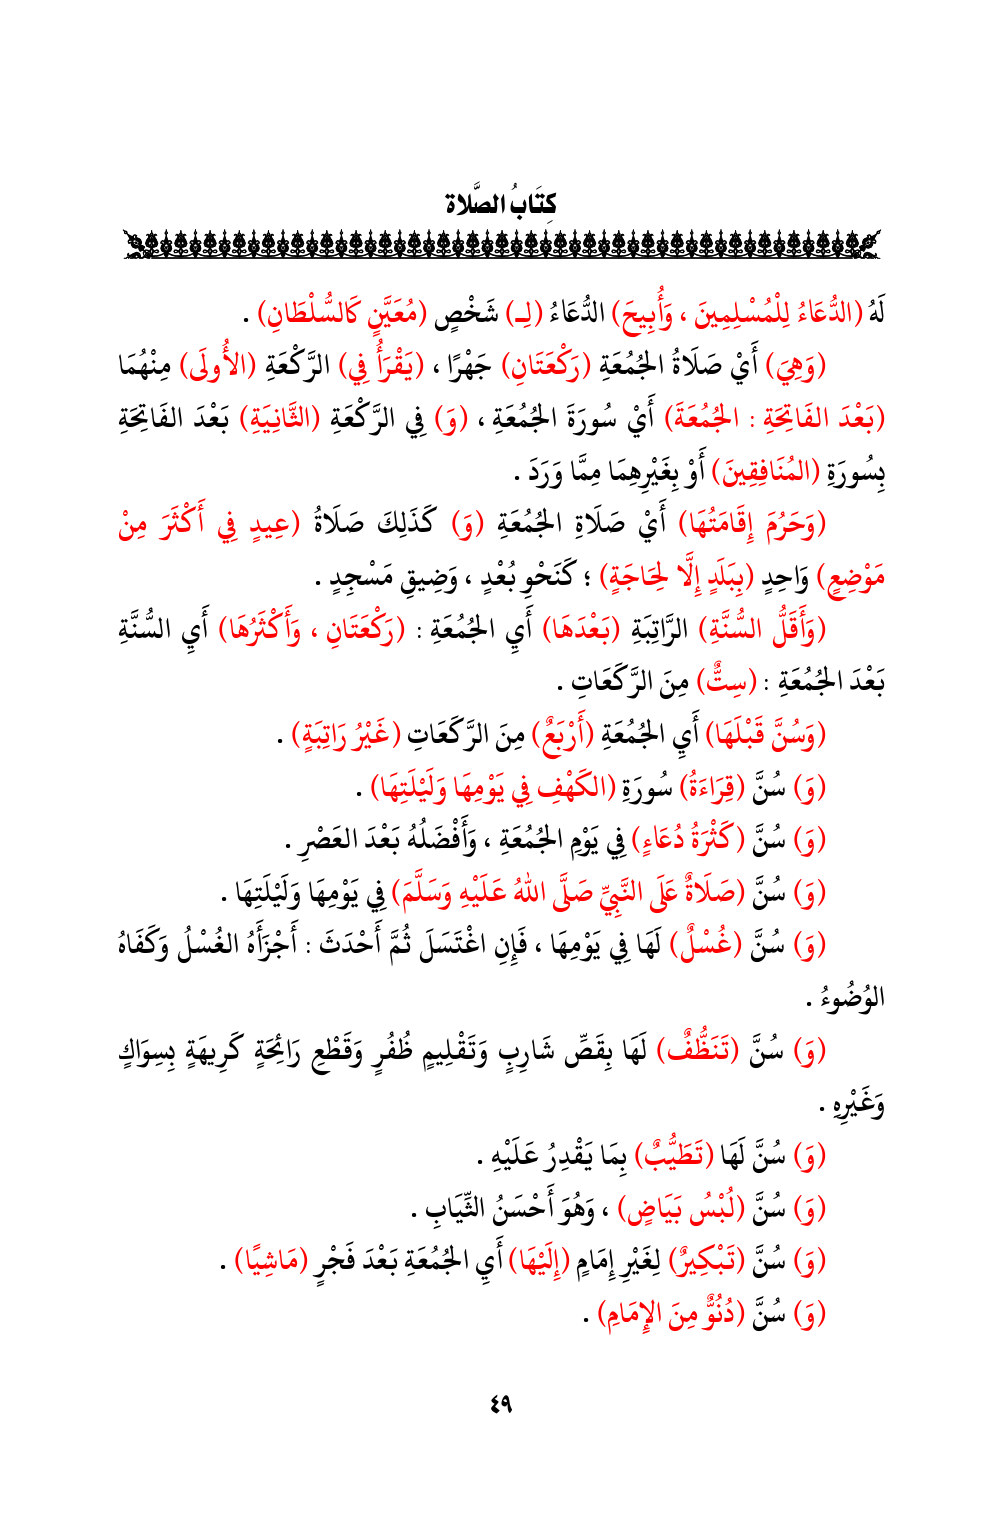 كِتَابُ الصَّلاة
لَهُ (الدُّعَاءُ لِلْمُسْلِمِينَ ، وَأُبِيحَ) الدُّعَاءُ (لِـ) شَخْصٍ (مُعَيَّنٍ كَالسُّلْطَانِ) .
(وَهِيَ) أَيْ صَلَاةُ الجُمُعَةِ (رَكْعَتَانِ) جَهْرًا ، (يَقْرَأُ فِي) الرَّكْعَةِ (الأُولَى) مِنْهُمَا
(بَعْدَ الفَاتِحَةِ : الجُمُعَةَ) أَيْ سُورَةَ الجُمُعَةِ ، (وَ) فِي الرَّكْعَةِ (الثَّانِيَةِ) بَعْدَ الفَاتِحَةِ
بِسُورَةِ (المُنَافِقِينَ) أَوْ بِغَيْرِهِمَا مِمَّا وَرَدَ .
(وَحَرُمَ إِقَامَتُهَا) أَيْ صَلَاةِ الجُمُعَةِ (وَ) كَذَلِكَ صَلَاةُ (عِيدٍ فِي أَكْثَرَ مِنْ
مَوْضِعٍ) وَاحِدٍ (بِبَلَدٍ إِلَّا لِحَاجَةٍ) ؛ كَنَحْوِ بُعْدٍ ، وَضِيقِ مَسْجِدٍ .
(وَأَقَلُّ السُّنَّةِ) الرَّاتِبَةِ (بَعْدَهَا) أَيِ الجُمُعَةِ : (رَكْعَتَانِ ، وَأَكْثَرُهَا) أَيِ السُّنَّةِ
بَعْدَ الجُمُعَةِ : (سِتٌّ) مِنَ الرَّكَعَاتِ .
(وَسُنَّ قَبْلَهَا) أَيِ الجُمُعَةِ (أَرْبَعٌ) مِنَ الرَّكَعَاتِ (غَيْرُ رَاتِبَةٍ) .
(وَ) سُنَّ (قِرَاءَةُ) سُورَةِ (الكَهْفِ فِي يَوْمِهَا وَلَيْلَتِهَا) .
(وَ) سُنَّ (كَثْرَةُ دُعَاءٍ) فِي يَوْمِ الجُمُعَةِ ، وَأَفْضَلُهُ بَعْدَ العَصْرِ .
(وَ) سُنَّ (صَلَاةٌ عَلَى النَّبِيِّ صَلَّى اللهُ عَلَيْهِ وَسَلَّمَ) فِي يَوْمِهَا وَلَيْلَتِهَا .
(وَ) سُنَّ (غُسْلٌ) لَهَا فِي يَوْمِهَا ، فَإِنِ اغْتَسَلَ ثُمَّ أَحْدَثَ : أَجْزَأَهُ الغُسْلُ وَكَفَاهُ
الوُضُوءُ .
(وَ) سُنَّ (تَنَظُّفٌ) لَهَا بِقَصِّ شَارِبٍ وَتَقْلِيمِ ظُفُرٍ وَقَطْعِ رَائِحَةٍ كَرِيهَةٍ بِسِوَاكٍ
وَغَيْرِهِ .
(وَ) سُنَّ لَهَا (تَطَيُّبٌ) بِمَا يَقْدِرُ عَلَيْهِ .
(وَ) سُنَّ (لُبْسُ بَيَاضٍ) ، وَهُوَ أَحْسَنُ الثِّيَابِ .
(وَ) سُنَّ (تَبْكِيرٌ) لِغَيْرِ إِمَامٍ (إِلَيْهَا) أَيِ الجُمُعَةِ بَعْدَ فَجْرٍ (مَاشِيًا) .
(وَ) سُنَّ (دُنُوٌّ مِنَ الإِمَامِ) .
٤٩